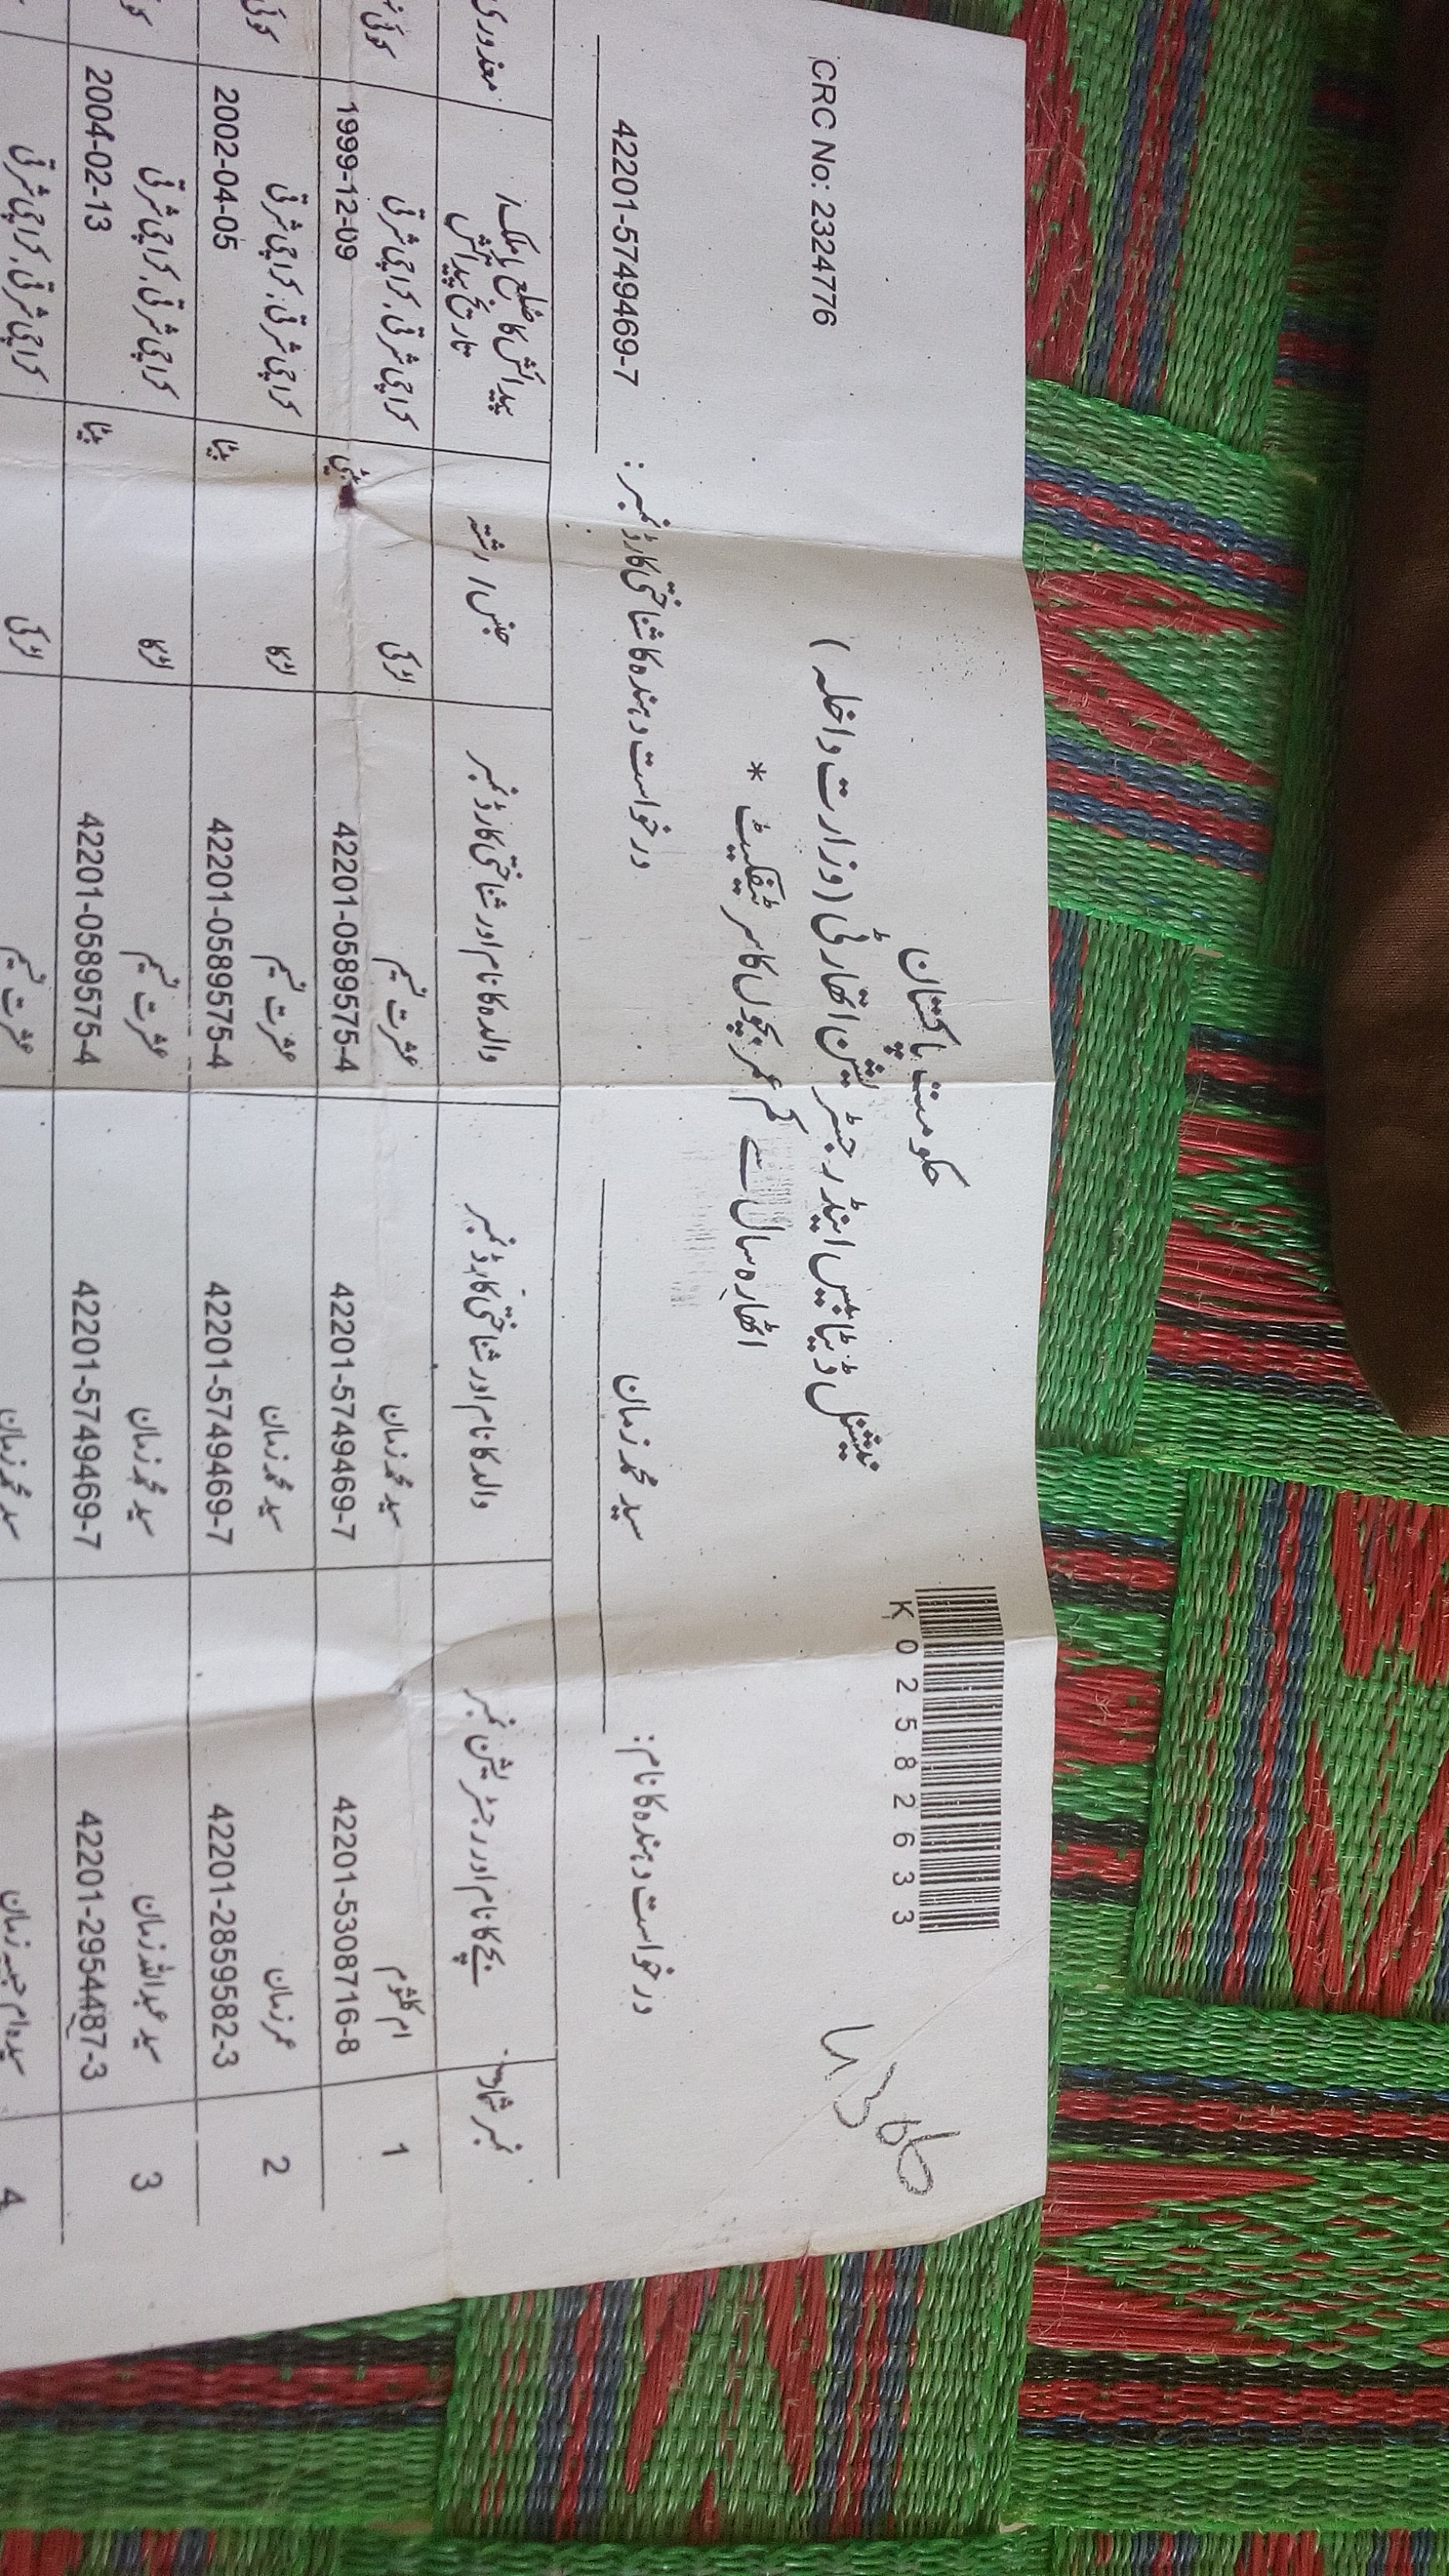 CRC No: 2324776
K02582633
4366
حکومت پاکستان
نیشنل ڈیٹا بیس اینڈ رجسٹریشن اتھارٹی (وزارت داخلہ)
اٹھارہ سال سے کم عمر بچوں کا سرٹیفکیٹ *
درخواست دہندہ کا نام: سید محمد زمان درخواست دہندہ کا شناختی کارڈ نمبر: 42201-5749469-7
نمبر شمار بچے کا نام اور رجسٹریشن نمبر والد کا نام اور شناختی کارڈ نمبر والدہ کا نام اور شناختی کارڈ نمبر جنس / رشتہ پیدائش کا ضلع / ملک / معذوری
تاریخ پیدائش
1 ام کلثوم سید محمد زمان عشرت نسیم لڑکی کراچی شرقی، کراچی شرقی کوئی
42201-5308716-8 42201-5749469-7 42201-0589575-4 بیٹی 1999-12-09
2 عمر زمان سید محمد زمان عشرت نسیم لڑکا کراچی شرقی، کراچی شرقی کوئی
42201-2859582-3 42201-5749469-7 42201-0589575-4 بیٹا 2002-04-05
3 سید عبداللہ زمان سید محمد زمان عشرت نسیم لڑکا کراچی شرقی، کراچی شرقی
42201-2954487-3 42201-5749469-7 42201-0589575-4 بیٹا 2004-02-13
4 سیدہ ام حبیبہ زمان سید محمد زمان عشرت نسیم لڑکی کراچی شرقی، کراچی شرقی